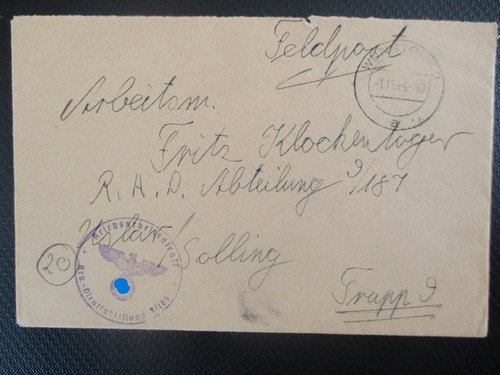 Feldpost
Arbeitsm.
Fritz Klockentager
R. A. D. Abteilung 9/187
Uslar/Solling
Trupp 9
20
Reichsarbeitsdienst